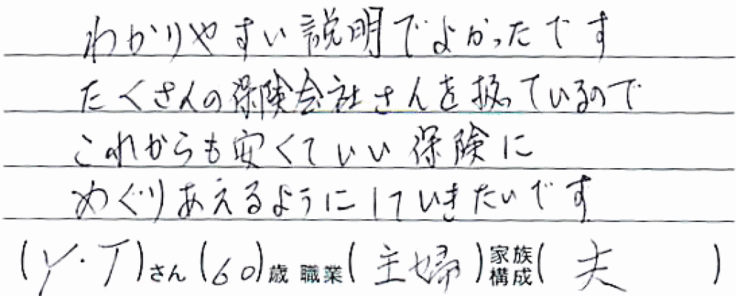 わかりやすい説明でよかったです
たくさんの保険会社さんを扱っているので
これからも安くていい保険に
めぐりあえるようにしていきたいです
(Y・T)さん(60)歳 職業(主婦)家族構成(夫)